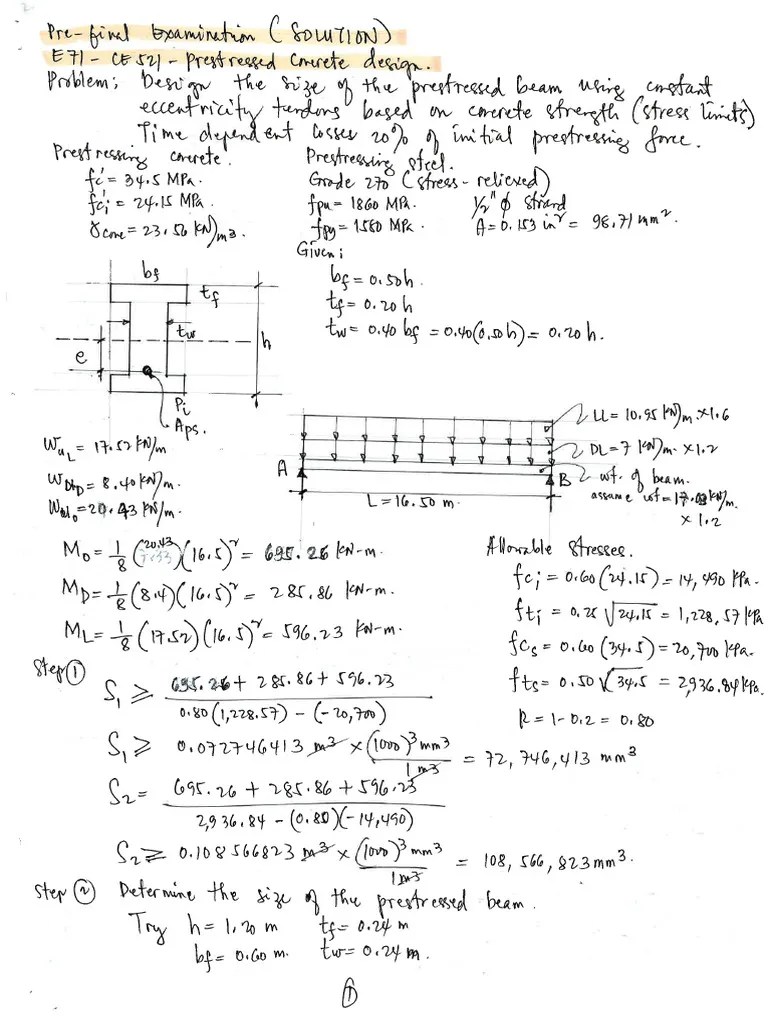 Pre-final Examination (SOLUTION)
E71 - CE 521 - prestressed concrete design.
Problem: Design the size of the prestressed beam using constant
eccentricity tendons based on concrete strength (stress limits)
Time dependent losses 20% of initial prestressing force.
Prestressing concrete.
fc' = 34.5 MPa.
fc'i = 24.15 MPa.
γconc = 23.56 kN/m3
Prestressing steel.
Grade 270 (stress-relieved)
fpu = 1860 MPa. 1/2" φ strand
fpy = 1580 MPa. A = 0.153 in² = 98.71 mm².
Given:
bf = 0.50h.
tf = 0.20h
tw = 0.40 bf = 0.40(0.50h) = 0.20h.
bf
tf
tw
h
e
Pi
Aps.
LL = 10.95 kN/m × 1.6
DL = 7 kN/m × 1.2
wt. of beam.
assume wt = 17.03 kN/m.
× 1.2
A
B
L = 16.50 m.
WuL = 17.52 kN/m
WDD = 8.40 kN/m.
= 20.43 kN/m.
Mo = 1/8 (20.43)(16.5)² = 695.26 kN-m.
MD = 1/8 (8.4)(16.5)² = 285.86 kN-m.
ML = 1/8 (17.52)(16.5)² = 596.23 kN-m.
Allowable stresses.
fci = 0.60(24.15) = 14,490 kPa.
fti = 0.25 √24.15 = 1,228.57 kPa
fcs = 0.60(34.5) = 20,700 kPa.
fts = 0.50 √34.5 = 2,936.84 kPa.
R = 1 - 0.2 = 0.80
Step ①
S1 ≥ 695.26 + 285.86 + 596.23 / 0.80(1,228.57) - (-20,700)
S1 ≥ 0.072746413 m³ × (1000)³ mm³ / 1 m³ = 72,746,413 mm³
S2 = 695.26 + 285.86 + 596.23 / 2,936.84 - (0.80)(-14,490)
S2 ≥ 0.108566823 m³ × (1000)³ mm³ / 1 m³ = 108,566,823 mm³.
Step ② Determine the size of the prestressed beam.
Try h = 1.20 m tf = 0.24 m
bf = 0.60 m. tw = 0.24 m.
①